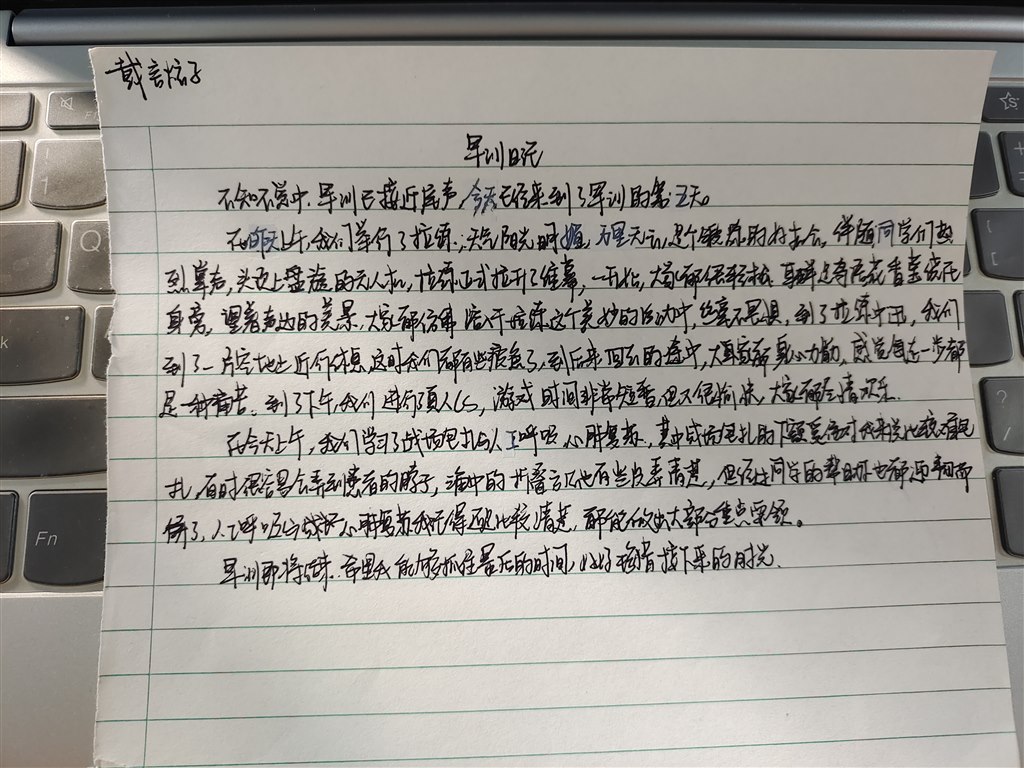 戴言
军训日记
不知不觉中，军训已接近尾声，今天已经来到了军训的第五天。
在昨天上午，我们举行了拉练；天气阳光明媚，万里无云，是个锻炼的好机会，伴随同学们热
烈掌声，头顶上盘旋的无人机，拉练正式拉开了维幕，一开始，大家都很轻松，花香
身旁，望着声边的美景，大家都仿佛溶于拉练这个美妙的活动中，丝毫不畏惧，到了拉练中途，我们
到了一片空地上进行休息，这时我们都有些疲惫了，到后来回去的途中，大家都身心力
是一种痛苦。到了下午，我们进行了真人CS，游戏时间非常短暂，但不很愉快，大家都尽情欢乐。
在今天上午，我们学习了战场包扎与人工呼吸，心肺复苏，其中战场包扎的下额对我来说比较难包
扎，有时很容易会弄到患者的脖子，步骤有些没弄清楚，但经过同学的帮助
得了，人工呼吸与心肺复苏我记得还比较清楚，都能做出大部分重点要领。
军训即将结束，希望我能够抓住最后的时间，好好珍惜接下来的时光。
Q
k
Fn